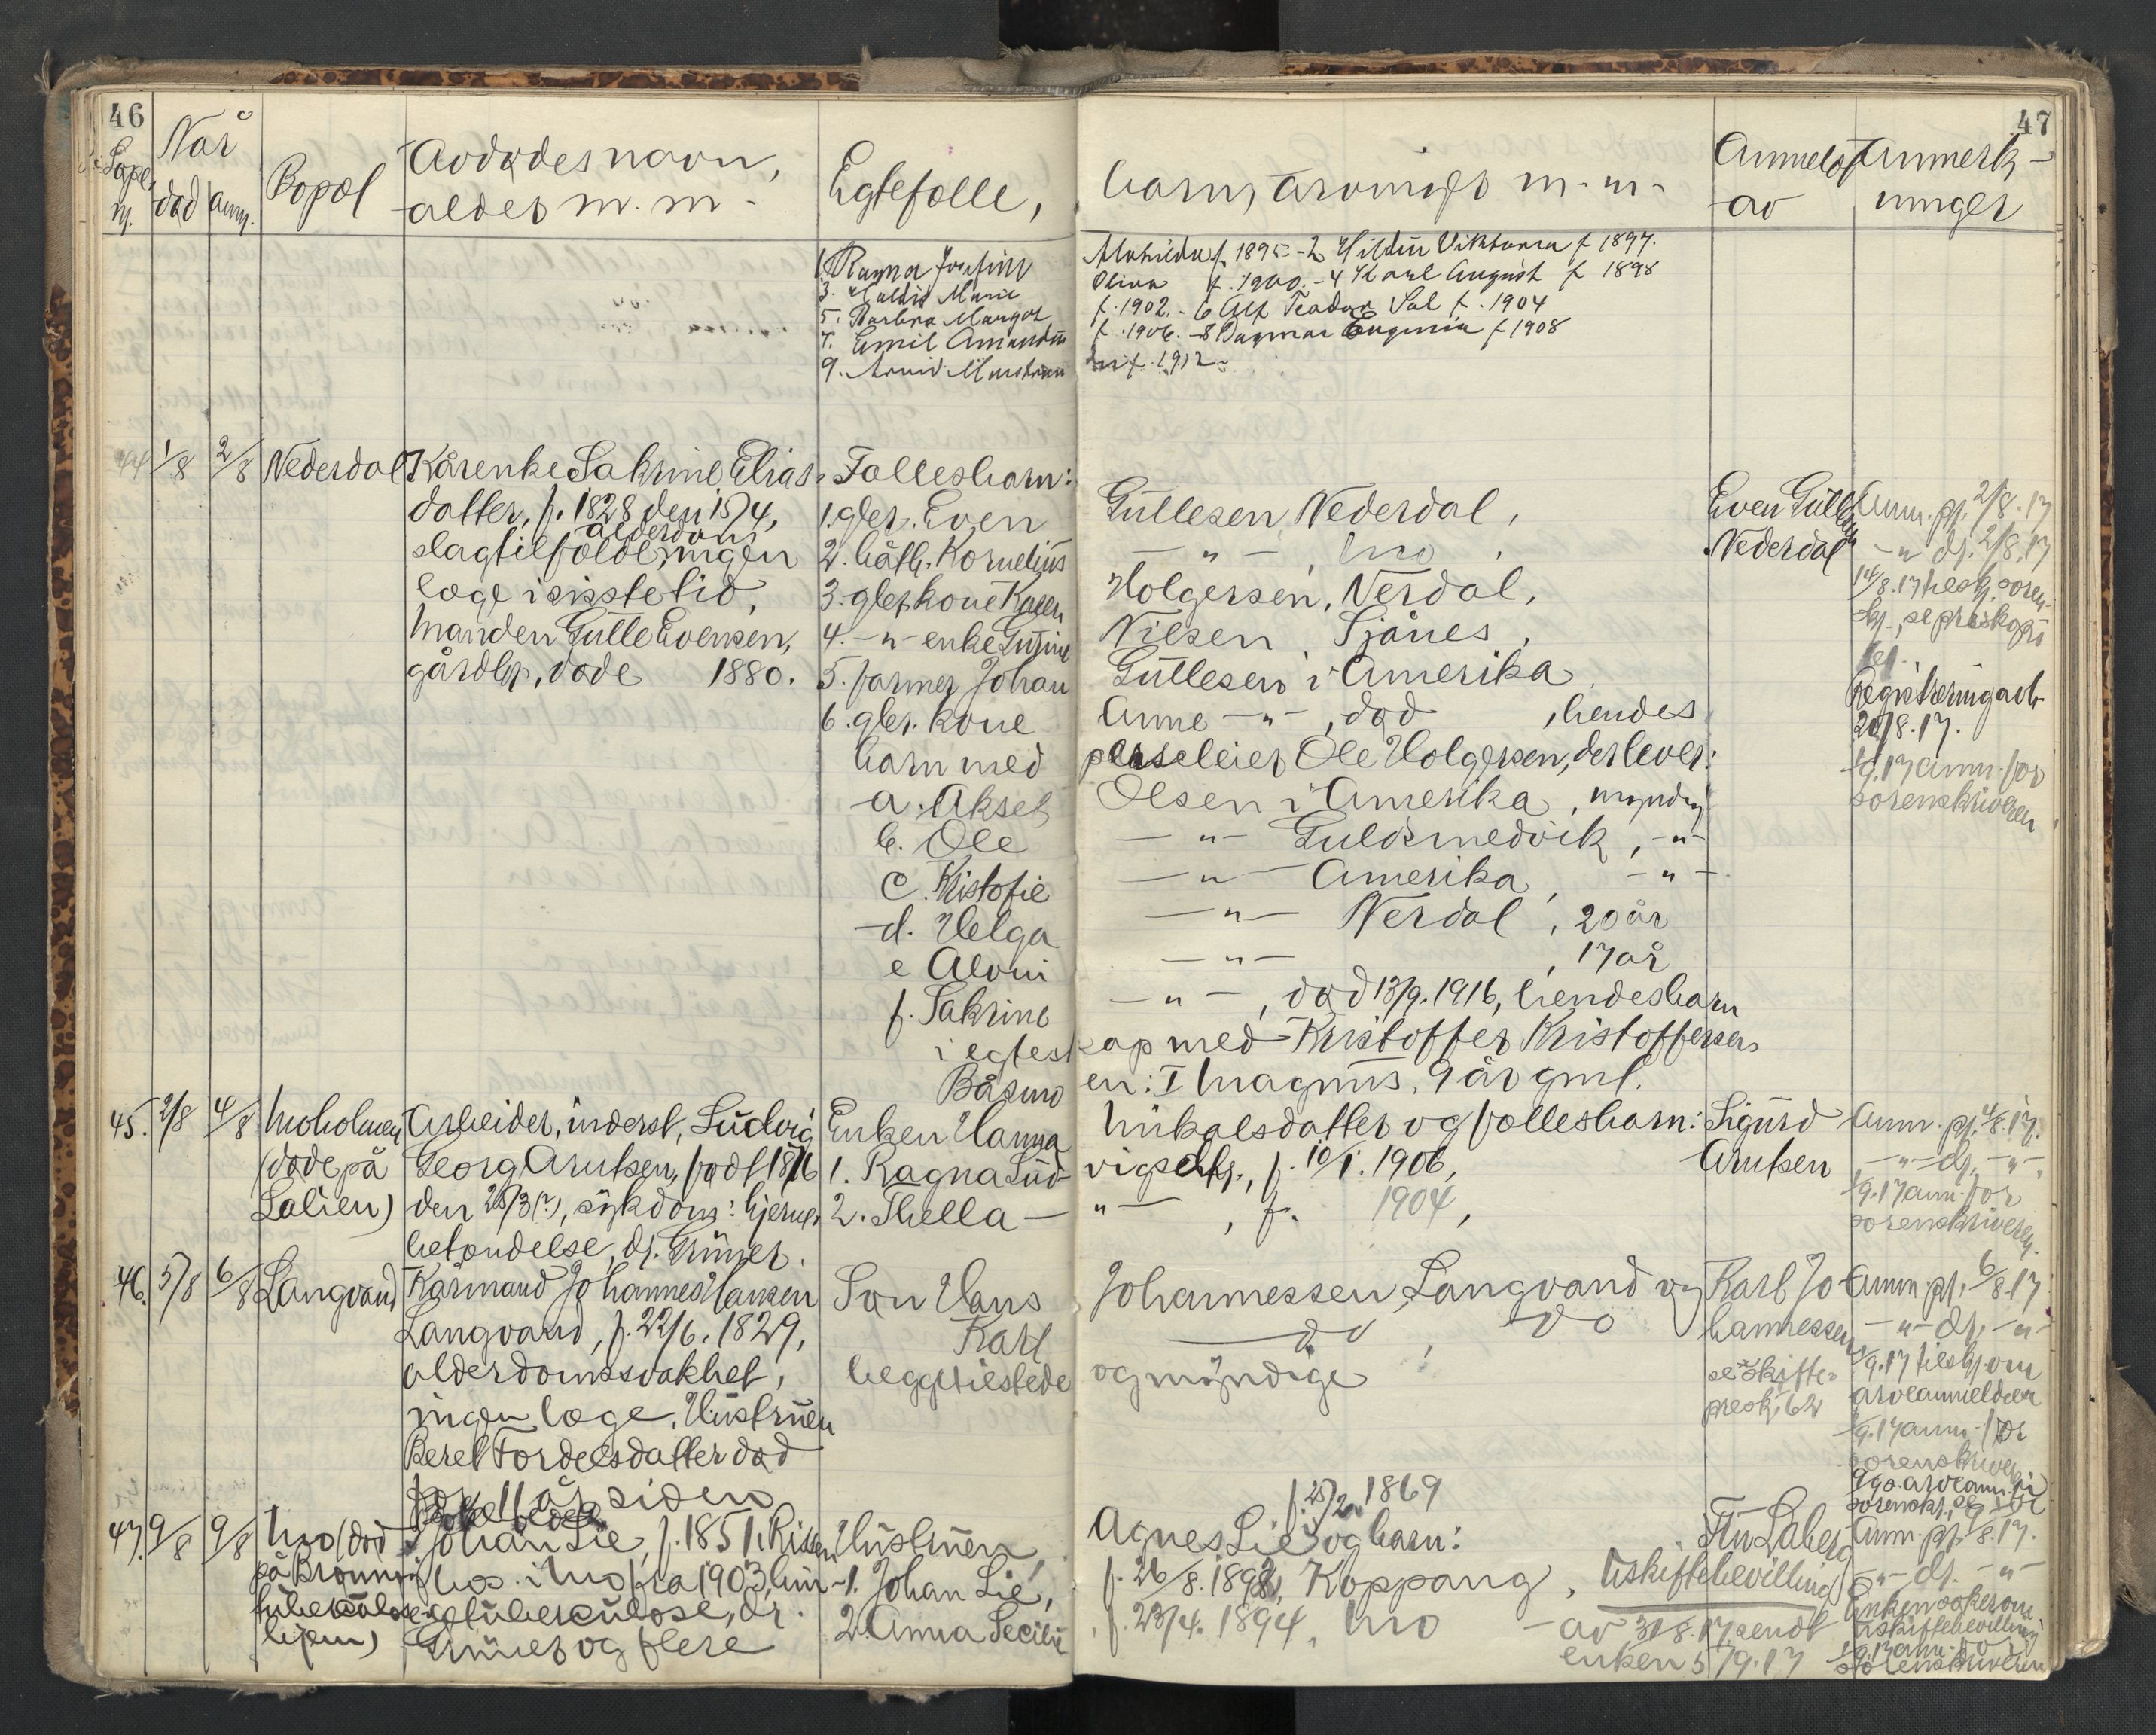 46
47
Når
Løpe nr. død anm. Bopæl Avdødes navn, alder m. m. Egtefælle, barn, arvinger m. m. Anmeldt av Anmerkninger
1. Ragna Josefine Mathilde f. 1895 - 2 Hildur Viktoria f. 1897.
3. Haldis Marie Oliva f. 1900. - 4 Karl August f. 1898
5. Barbra Margot f. 1902. - 6 Alf Teodor Sal f. 1904
7. Emil Amandus f. 1906. - 8 Dagmar Eugenia f 1908
9. Arvid f. 1912
44 1/8 2/8 Nederdal
Kårenke Sakrine Elias-
datter, f. 1828 den 15/4,
alderdom
slagtilfælde, ingen
læge i siste tid,
Manden Gulle Evensen,
gårdbr., døde 1880.
Fællesbarn:
1. gbr. Even Gullesen, Nederdal,
2. båtb. Kornelius -"- , Mo ,
3. gbr. kone Karen Holgersen, Nerdal,
4. -"- enke Gurine Nilsen, Sjånes,
5. farmer Johan Gullesen i Amerika
6. gbr. kone Anne -"- , død , hendes
barn med parseleier Ole Holgersen, der lever:
a. Aksel Olsen i Amerika, myndig
b. Ole -"- Guldsmedvik, -"-
c. Kristofie -"- Amerika, -"-
d. Helga -"- Nerdal, 20 år
e Alovni -"- , 17 år
f. Sakrine -"- , død 13/9. 1916, hendes barn
i egteskap med Kristoffer Kristoffersen
Båsmo en: I Magnus, 9 år gml.
Even Gullesen
Nederdal
Anm. pf. 2/8. 17
-"- df. 2/8. 17
14/8. 17 besk. soren-
skr., se preskopi
Registrering avh.
20/8. 17.
1/9. 17 anm. for
sorenskriveren
45. 2/8 4/8 Moholmen
(døde på
Løiten)
Arbeider, inderst, Ludvig
Georg Arntsen, født 1876
den 28/3 (?), sykdom: hjerne-
betændelse, dr. Grüner.
Enken Hanna Mikalsdatter og fællesbarn:
1. Ragna Ludvigsdtr., f. 10/1. 1906,
2. Thella -"- , f. 1904,
Sigurd
Arntsen
Anm. pf. 4/8. 17.
-"- df. -"-
1/9. 17 anm. for
sorenskriveren.
46. 5/8 6/8 Langvand
Kårmand Johannes Hansen
Langvand, f. 22/6. 1829,
alderdomssvakhet,
ingen læge. Hustruen
Beret Fordelsdatter død
for 11 år siden
Søn Hans Johannessen, Langvand og
Karl do do
begge tilstede og myndige
Karl Jo-
hannessen
se skifte-
prot. 62
Anm. pf. 6/8. 17
-"- df. -"-
1/9. 17 tilskr. om
arveanmeldelse
1/9. 17 anm. for
sorenskriver
47. 9/8 9/8 Mo (død
på Brønnøy
tuberkulose-
hjem)
Johan Lie, f. 1851 i Rissen
bos. i Mo fra 1903, lun-
getuberkulose, dr.
Grüner og flere
Hustruen Agnes Lie og barn:
f. 25/2. 1869
1. Johan Lie, f. 26/8. 1892, Koppang,
2. Anna Secilie, f. 23/4. 1894, Mo
Uskiftebevilling
av 31/8. 17 sendt
enken 5/9. 17
Anm. pf. 9/8. 17.
-"- df. -"-
Enken søker om
uskiftebevilling
1/9. 17 anm. for
sorenskriveren